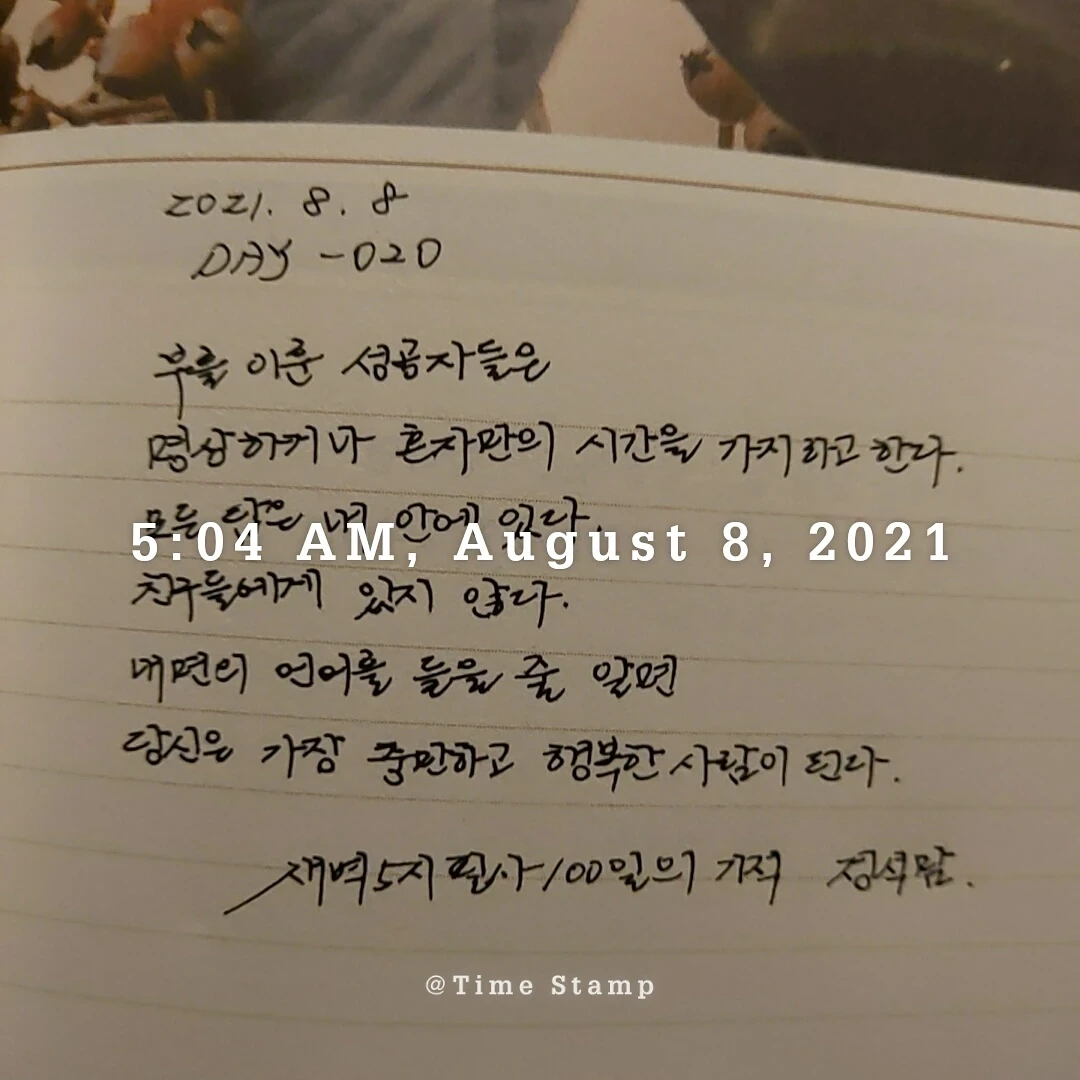 2021. 8. 8
DAY - 020
부를 이룬 성공자들은
명상하거나 혼자만의 시간을 가지라고 한다.
모든 답은 내 안에 있다.
5:04 AM, August 8, 2021
친구들에게 있지 않다.
내면의 언어를 들을 줄 알면
당신은 가장 충만하고 행복한 사람이 된다.
새벽 5시 필사 100일의 기적 정석
@Time Stamp